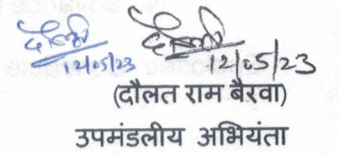 12/05/23 12/05/23
(दौलत राम बैरवा)
उपमंडलीय अभियंता